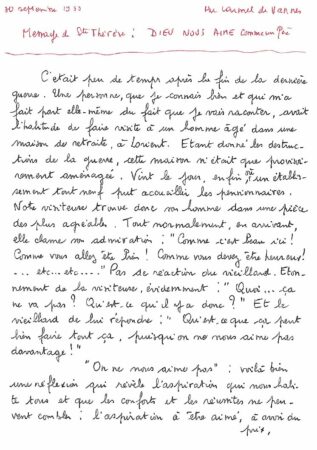 30 septembre 1933 Au Carmel de Vannes
Message de Ste Thérèse : DIEU NOUS AIME comme un Père
C'était peu de temps après la fin de la dernière
guerre. Une personne, que je connais bien et qui m'a
fait part elle-même du fait que je vais raconter, avait
l'habitude de faire visite à un homme âgé dans une
maison de retraite, à Lorient. Etant donné les destruc-
tions de la guerre, cette maison n'était que provisoi-
rement aménagée. Vint le jour, enfin où un établis-
sement tout neuf put accueillir les pensionnaires.
Notre visiteuse trouve donc son homme dans une pièce
des plus agréables. Tout normalement, en arrivant,
elle clame son admiration : "Comme c'est beau ici !
Comme vous allez être bien ! Comme vous devez être heureux !
... etc... etc...." Pas de réaction du vieillard. Eton-
nement de la visiteuse, évidemment : "Quoi... ça
ne va pas ? Qu'est-ce qu'il y a donc ?" Et le
vieillard de lui répondre : "Qu'est-ce que ça peut
bien faire tout ça, puisqu'on ne nous aime pas
davantage !"
"On ne nous aime pas" : voilà bien
une réflexion qui révèle l'aspiration qui nous habi-
te tous et que les conforts et les réussites ne peu-
vent combler : l'aspiration à être aimé, à avoir du
prix,